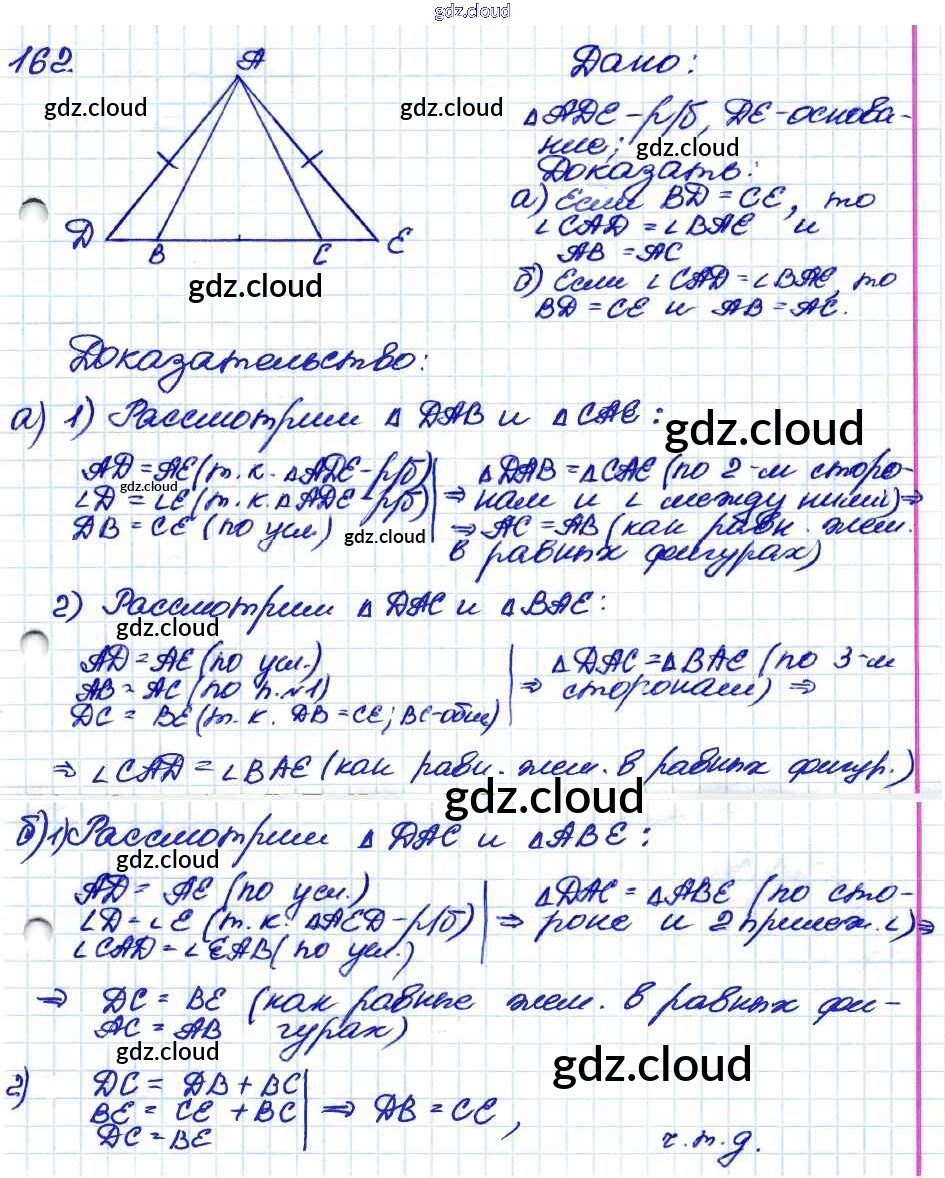 gdz.cloud
162.
A
Дано:
gdz.cloud
gdz.cloud
△ADE – р/б, DE – основа-
ние;
gdz.cloud
Доказать:
а) Если BD = CE, то
∠CAD = ∠BAE и
AB = AC
D B C E
gdz.cloud
б) Если ∠CAD = ∠BAE, то
BD = CE и AB = AC.
Доказательство:
а) 1) Рассмотрим △ DAB и △CAE:
gdz.cloud
AD = AE (т. к. △ADE – р/б)
gdz.cloud
∠D = ∠E (т. к. △ADE – р/б)
DB = CE (по усл.)
gdz.cloud
⇒ △DAB = △CAE (по 2-м сторо-
нам и ∠ между ними) ⇒
⇒ AC = AB (как равн. элем.
в равных фигурах)
2) Рассмотрим △ DAC и △BAE:
gdz.cloud
AD = AE (по усл.)
AB = AC (по п. №1)
DC = BE (т. к. DB = CE; BC – общ)
⇒ △DAC = △BAE (по 3-м
сторонам) ⇒
⇒ ∠CAD = ∠BAE (как равн. элем. в равных фигур.)
gdz.cloud
б) 1) Рассмотрим △ DAC и △ABE:
gdz.cloud
AD = AE (по усл.)
∠D = ∠E (т. к. △AED – р/б)
∠CAD = ∠EAB (по усл.)
⇒ △DAC = △ABE (по сто-
роне и 2 прилеж. ∠) ⇒
⇒ DC = BE (как равные элем. в равных фи-
AC = AB гурах)
gdz.cloud
gdz.cloud
2) DC = DB + BC
BE = CE + BC
DC = BE
⇒ DB = CE,
ч. т. д.